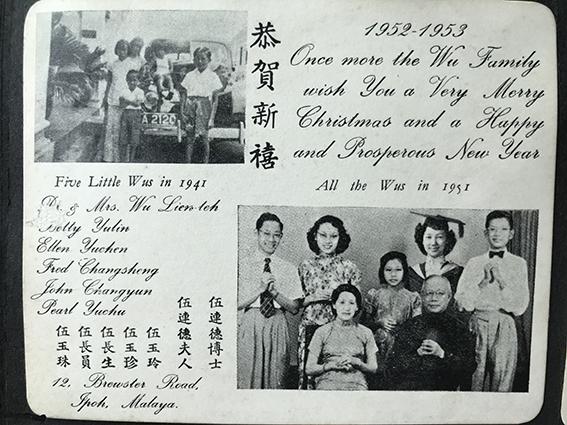 恭賀新禧
1952-1953
Once more the Wu Family
wish You a Very Merry
Christmas and a Happy
and Prosperous New Year
A 2120
Five Little Wus in 1941
All the Wus in 1951
Dr. & Mrs. Wu Lien-teh
Betty Yulin
Ellen Yuchen
Fred Changsheng
John Changyun
Pearl Yuchu
伍連德博士
伍連德夫人
伍玉玲
伍玉珍
伍長生
伍長員
伍玉珠
12, Brewster Road,
Ipoh, Malaya.